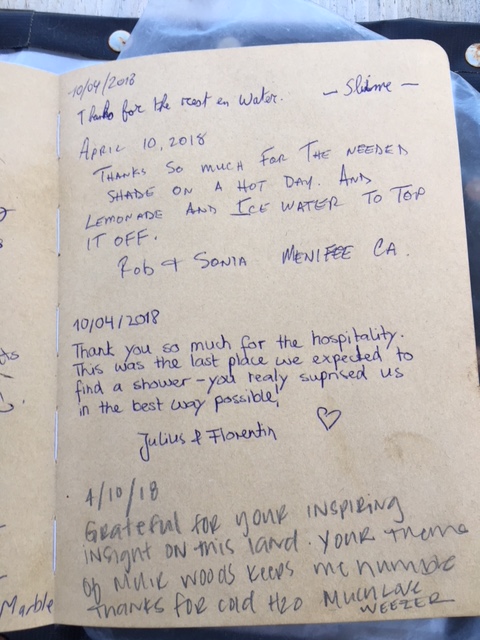 10/04/2018
Thanks for the rest en Water.
APRIL 10, 2018
THANKS SO MUCH FOR THE NEEDED
SHADE ON A HOT DAY. AND
LEMONADE AND ICE WATER TO TOP
IT OFF.
Rob & SONIA MENIFEE CA.
10/04/2018
Thank you so much for the hospitality.
This was the last place we expected to
find a shower - you realy suprised us
in the best way possible!
Julius & Florentin
4/10/18
Grateful for your INSPIRING
insight on this land. Your theme
of Muir Woods keeps me humble
thanks for cold H2O Much Love
WEEZER
Marble